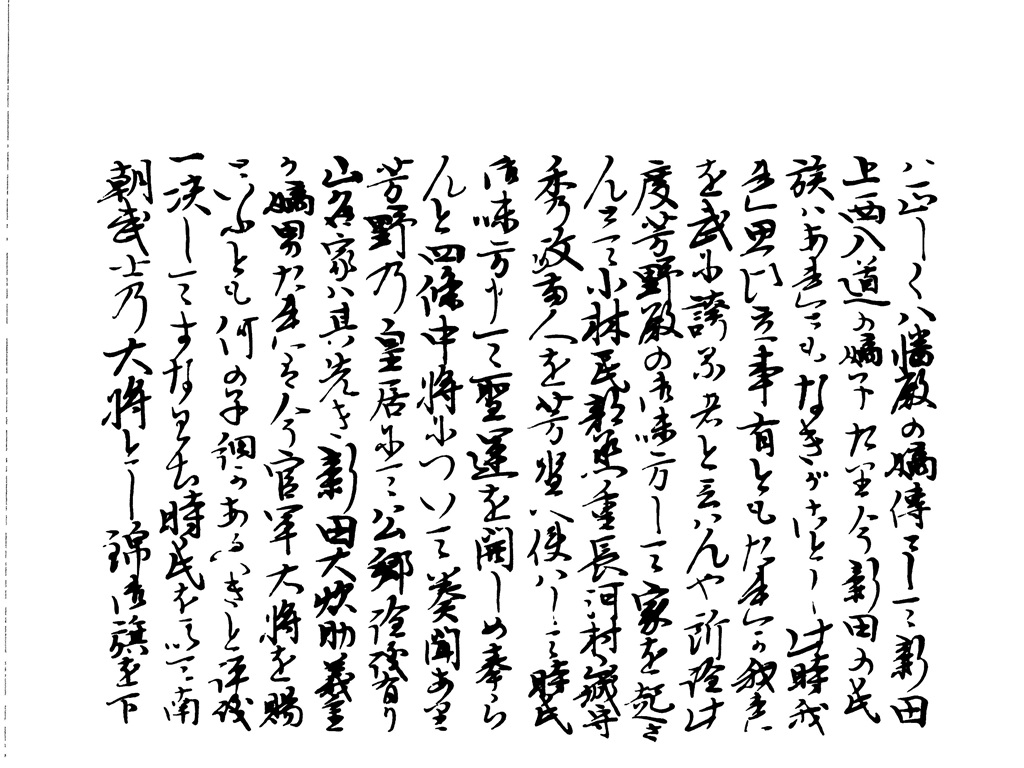 ハ正しく八幡殿の嫡傳にして新田
上西入道の嫡子たり今新田の氏
族ハあれともなきがことし此時我
家思ひ立事有ともたれか我家に
を武に誇る者と云ハんや所詮此
度芳野殿の御味方して家を起さ
んとて小林民部丞重長河村城守
秀政両人を芳野へ使ハして時氏
御味方申て聖運を開しめ奉ら
んと四條中将につひて奏聞あり
芳野乃皇居にて公卿詮議有り
山名家ハ其先き新田大炊助義重
か嫡男たれは今官軍大将を賜
ふとも何の子細かあるへきと評議
一决してすなわち時氏を以て南
朝武士乃大将とし錦御旗を下